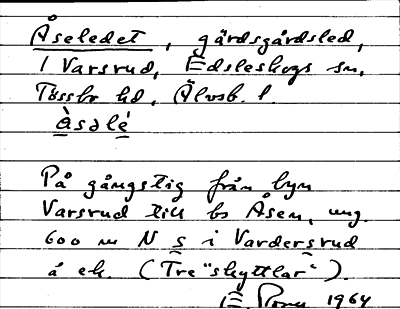 Åseledet, gärdsgårdsled,
i Varsrud, Edsleskogs sn,
Tössbo hd, Älvsb. l.
àsəlé
På gångstig från byn
Varsrud till bs Åsen, ung.
600 m N s i Vardersrud
å ek. (Tre "skyttlar").
1964